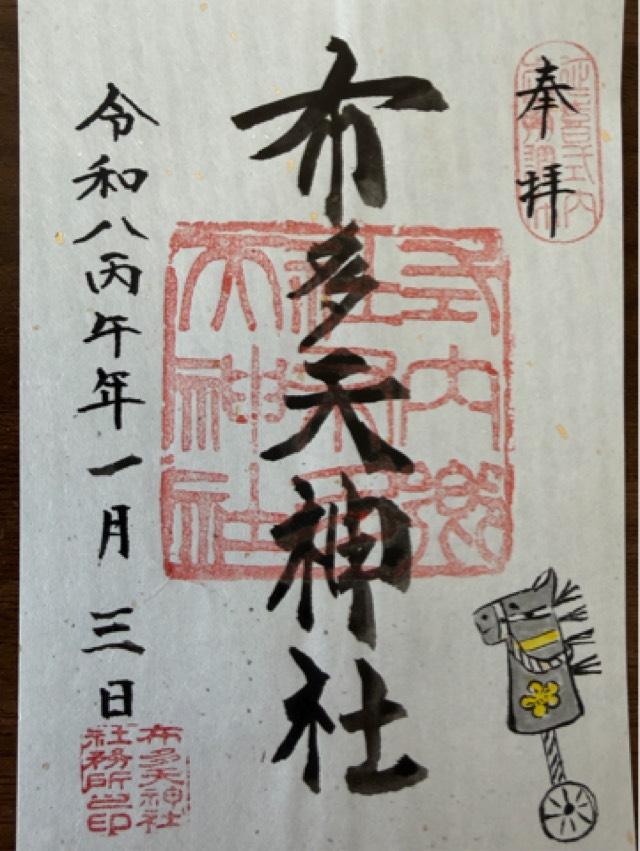 奉拝
布多天神社
令和八丙午年一月三日
布多天神社
社務所之印